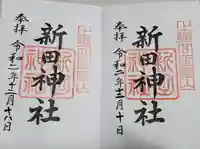 新田神社
奉拝
令和二年十二月十日
新田神社
奉拝
令和二年十二月十八日